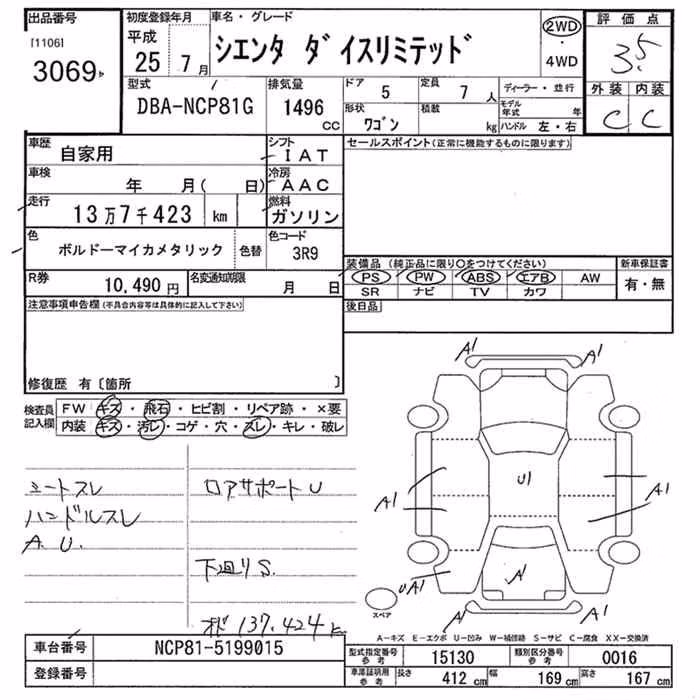 出品番号 初度登録年月 車名・グレード 評価点
[1106] 平成 シエンタ ダイスリミテッド 2WD ・ 4WD 3.5
3069 25 7月
外装 内装
型式 排気量 ドア 5 定員 7人 ディーラー・並行
DBA-NCP81G 1496 CC 形状 ワゴン 積載 kg モデル年式 年 C C
ハンドル 左・右
車歴 自家用 シフト IAT セールスポイント(正常に機能するものに限ります)
車検 年 月( 日) 冷房 AAC
走行 13万7千423 km 燃料 ガソリン
色 ボルドーマイカメタリック 色替 色コード 3R9
装備品(純正品に限り○をつけてください) 新車保証書
R券 10,490円 名変通知期限 月 日 PS PW ABS エアB AW 有・無
SR ナビ TV カワ
注意事項申告欄(不具合内容等は具体的に記入して下さい) 後日品
修復歴 有〔箇所 〕
A1 A1
検査員記入欄 FW キズ・飛石・ヒビ割・リペア跡・×要
内装・キズ・汚レ・コゲ・穴・スレ・キレ・破レ
U1
A1 A1
シートスレ ロアサポートU
ハンドルスレ
A.U.
下廻りS.
UA1 A
スペア
A1 A1
オド 137,424k
A-キズ E-エクボ U-凹み W-補修跡 S-サビ C-腐食 XX-交換済
車台番号 NCP81-5199015 型式指定番号 参考 15130 類別区分番号 参考 0016
登録番号 車庫証明用 参考 長さ 412 cm 幅 169 cm 高さ 167 cm